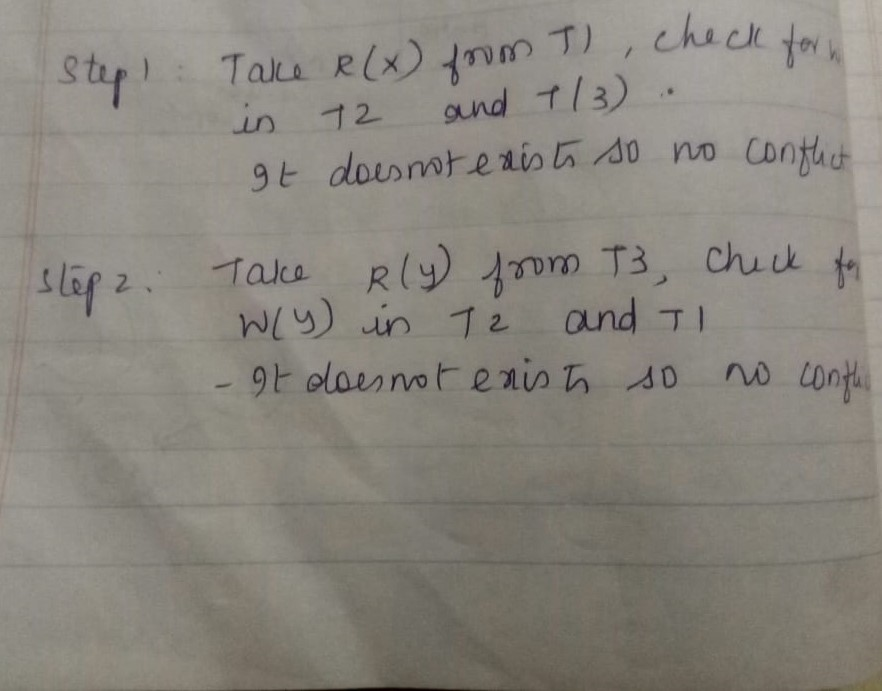 Step 1 : Take R(x) from T1, check for
in T2 and T(3).
It doesnot exists so no conflict
Step 2 : Take R(y) from T3, check
W(y) in T2 and T1
- It doesnot exists so no